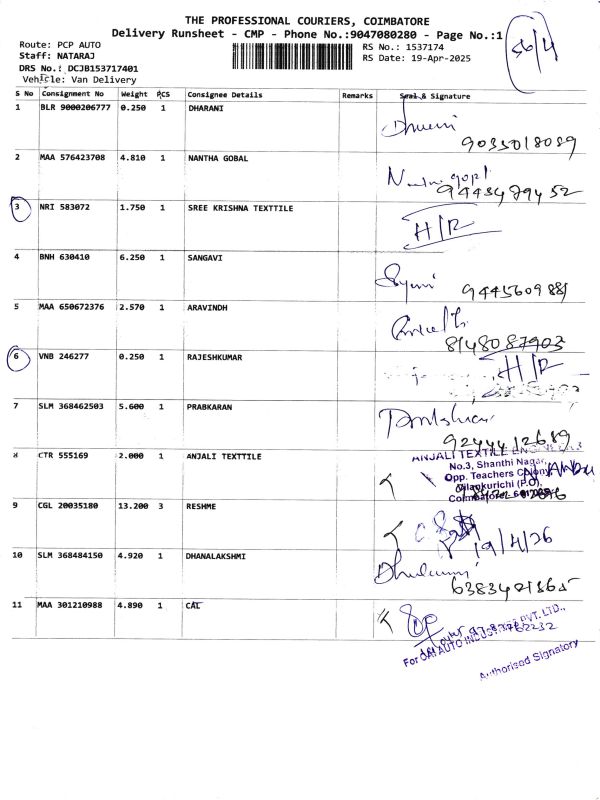 THE PROFESSIONAL COURIERS, COIMBATORE
Delivery Runsheet - CMP - Phone No.:9047080280 - Page No.:1
56/4
Route: PCP AUTO
Staff: NATARAJ
DRS No.: DCJB153717401
Vehicle: Van Delivery
RS No.: 1537174
RS Date: 19-Apr-2025
S No Consignment No Weight PCS Consignee Details Remarks Seal & Signature
1 BLR 9000206777 0.250 1 DHARANI
9035018089
2 MAA 576423708 4.810 1 NANTHA GOBAL
3 NRI 583072 1.750 1 SREE KRISHNA TEXTTILE H/R
4 BNH 630410 6.250 1 SANGAVI
5 MAA 650672376 2.570 1 ARAVINDH
8148087903
6 VNB 246277 0.250 1 RAJESHKUMAR H/R
7 SLM 368462503 5.600 1 PRABKARAN
9244412689
8 CTR 555169 2.000 1 ANJALI TEXTTILE
ANJALI TEXTILE
No.3, Shanthi Nagar,
Opp. Teachers Colony
Vilankurichi (P.O),
Coimbatore
9 CGL 20035180 13.200 3 RESHME
19/4/26
10 SLM 368484150 4.920 1 DHANALAKSHMI
11 MAA 301210988 4.890 1 CAL
For CAI AUTO INDUSTRIES PVT. LTD.,
Authorised Signatory